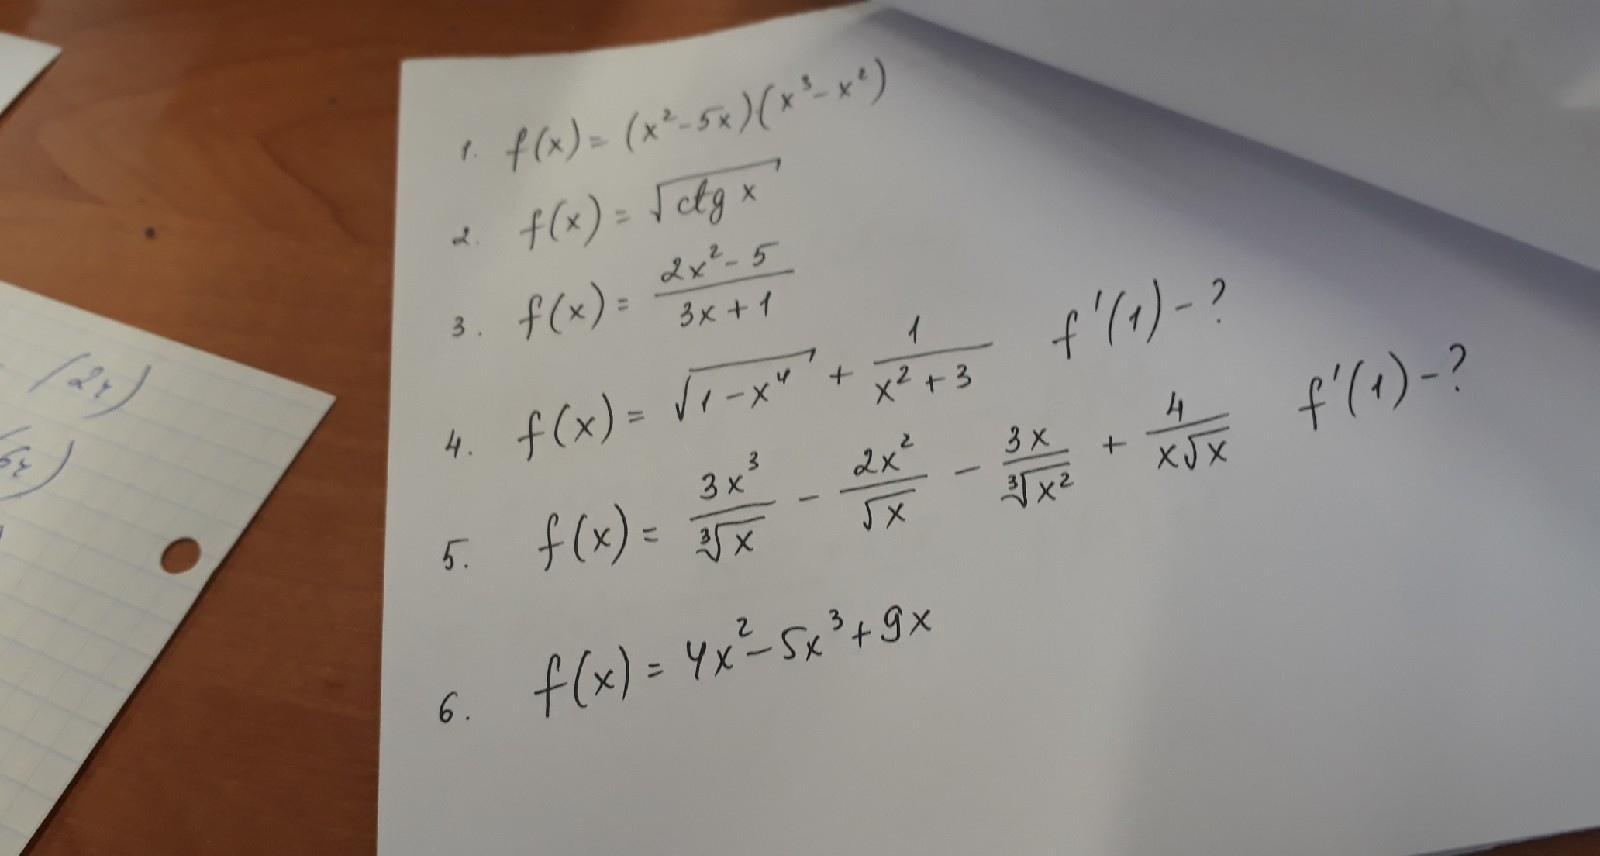 1. f(x) = (x² - 5x)(x³ - x²)
2. f(x) = √(ctg x)
3. f(x) = (2x² - 5)/(3x + 1)
4. f(x) = √(1 - x⁴) + 1/(x² + 3) f'(1) - ?
5. f(x) = 3x³/∛x - 2x²/√x - 3x/∛x² + 4/(x√x) f'(1) - ?
6. f(x) = 4x² - 5x³ + 9x